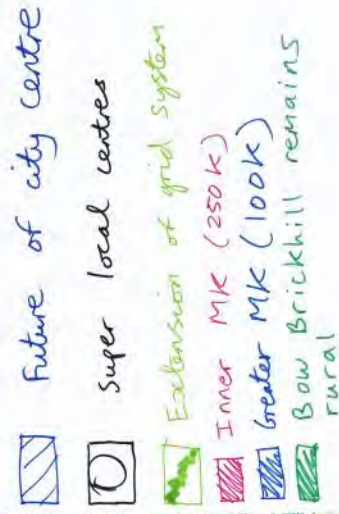 Future of city centre
Super local centres
Extension of grid system
Inner MK (250K)
Greater MK (100K)
Bow Brickhill remains
rural